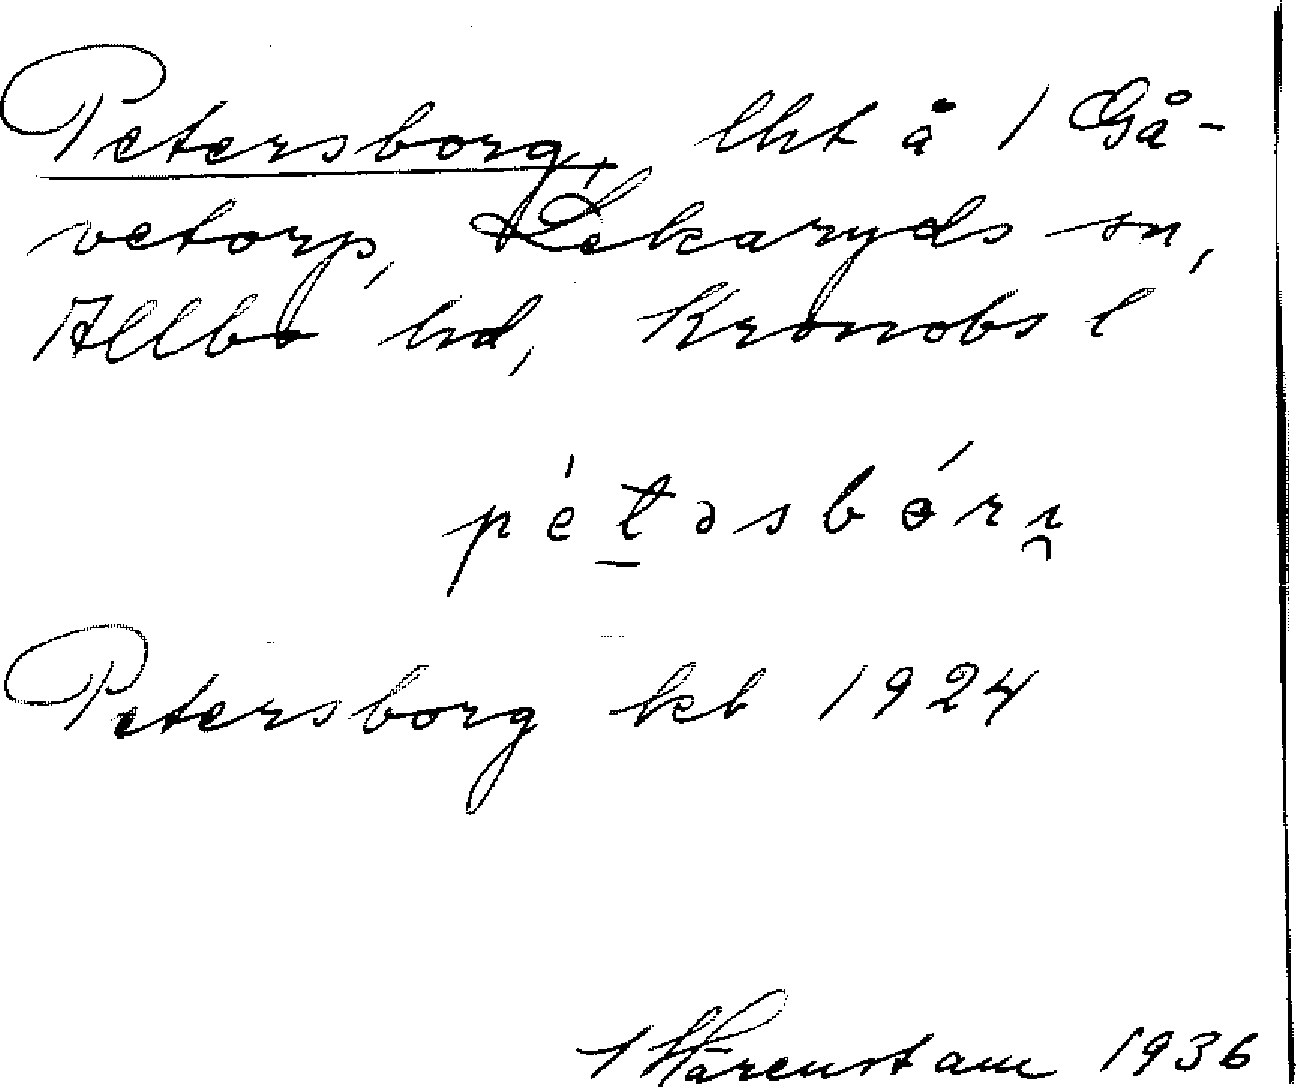 Petersborg, lht å 1 Gå-
vetorp, Lekaryds sn,
Allbo hd, Kronobs l
Petersborg kb 1924
Härenstam 1936